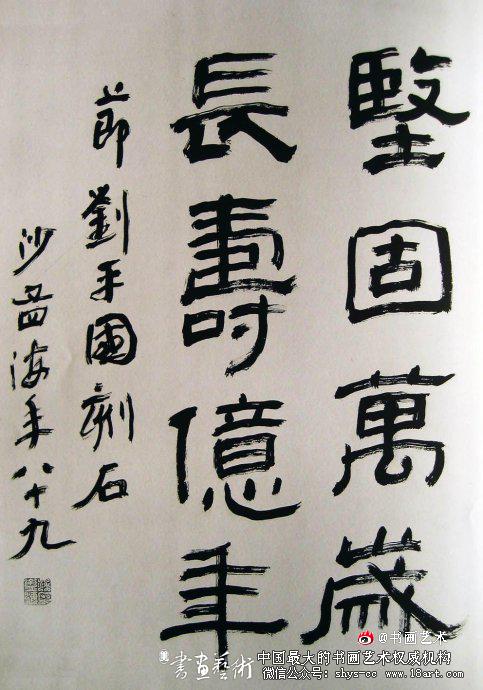 堅固萬歲
長壽億年
節劉平國刻石
沙孟海年八十九
@书画艺术
書畫藝術
中国最大的书画艺术权威机构
微信公众号：shys-cc www.18art.com